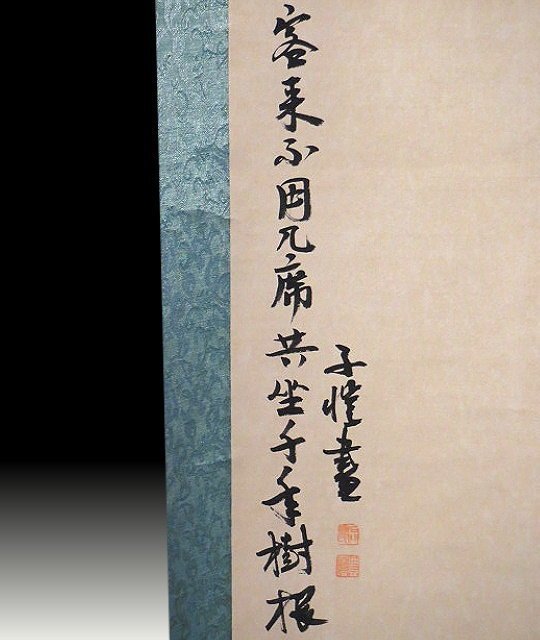 客来不用几席共坐千年樹根
子愷畫